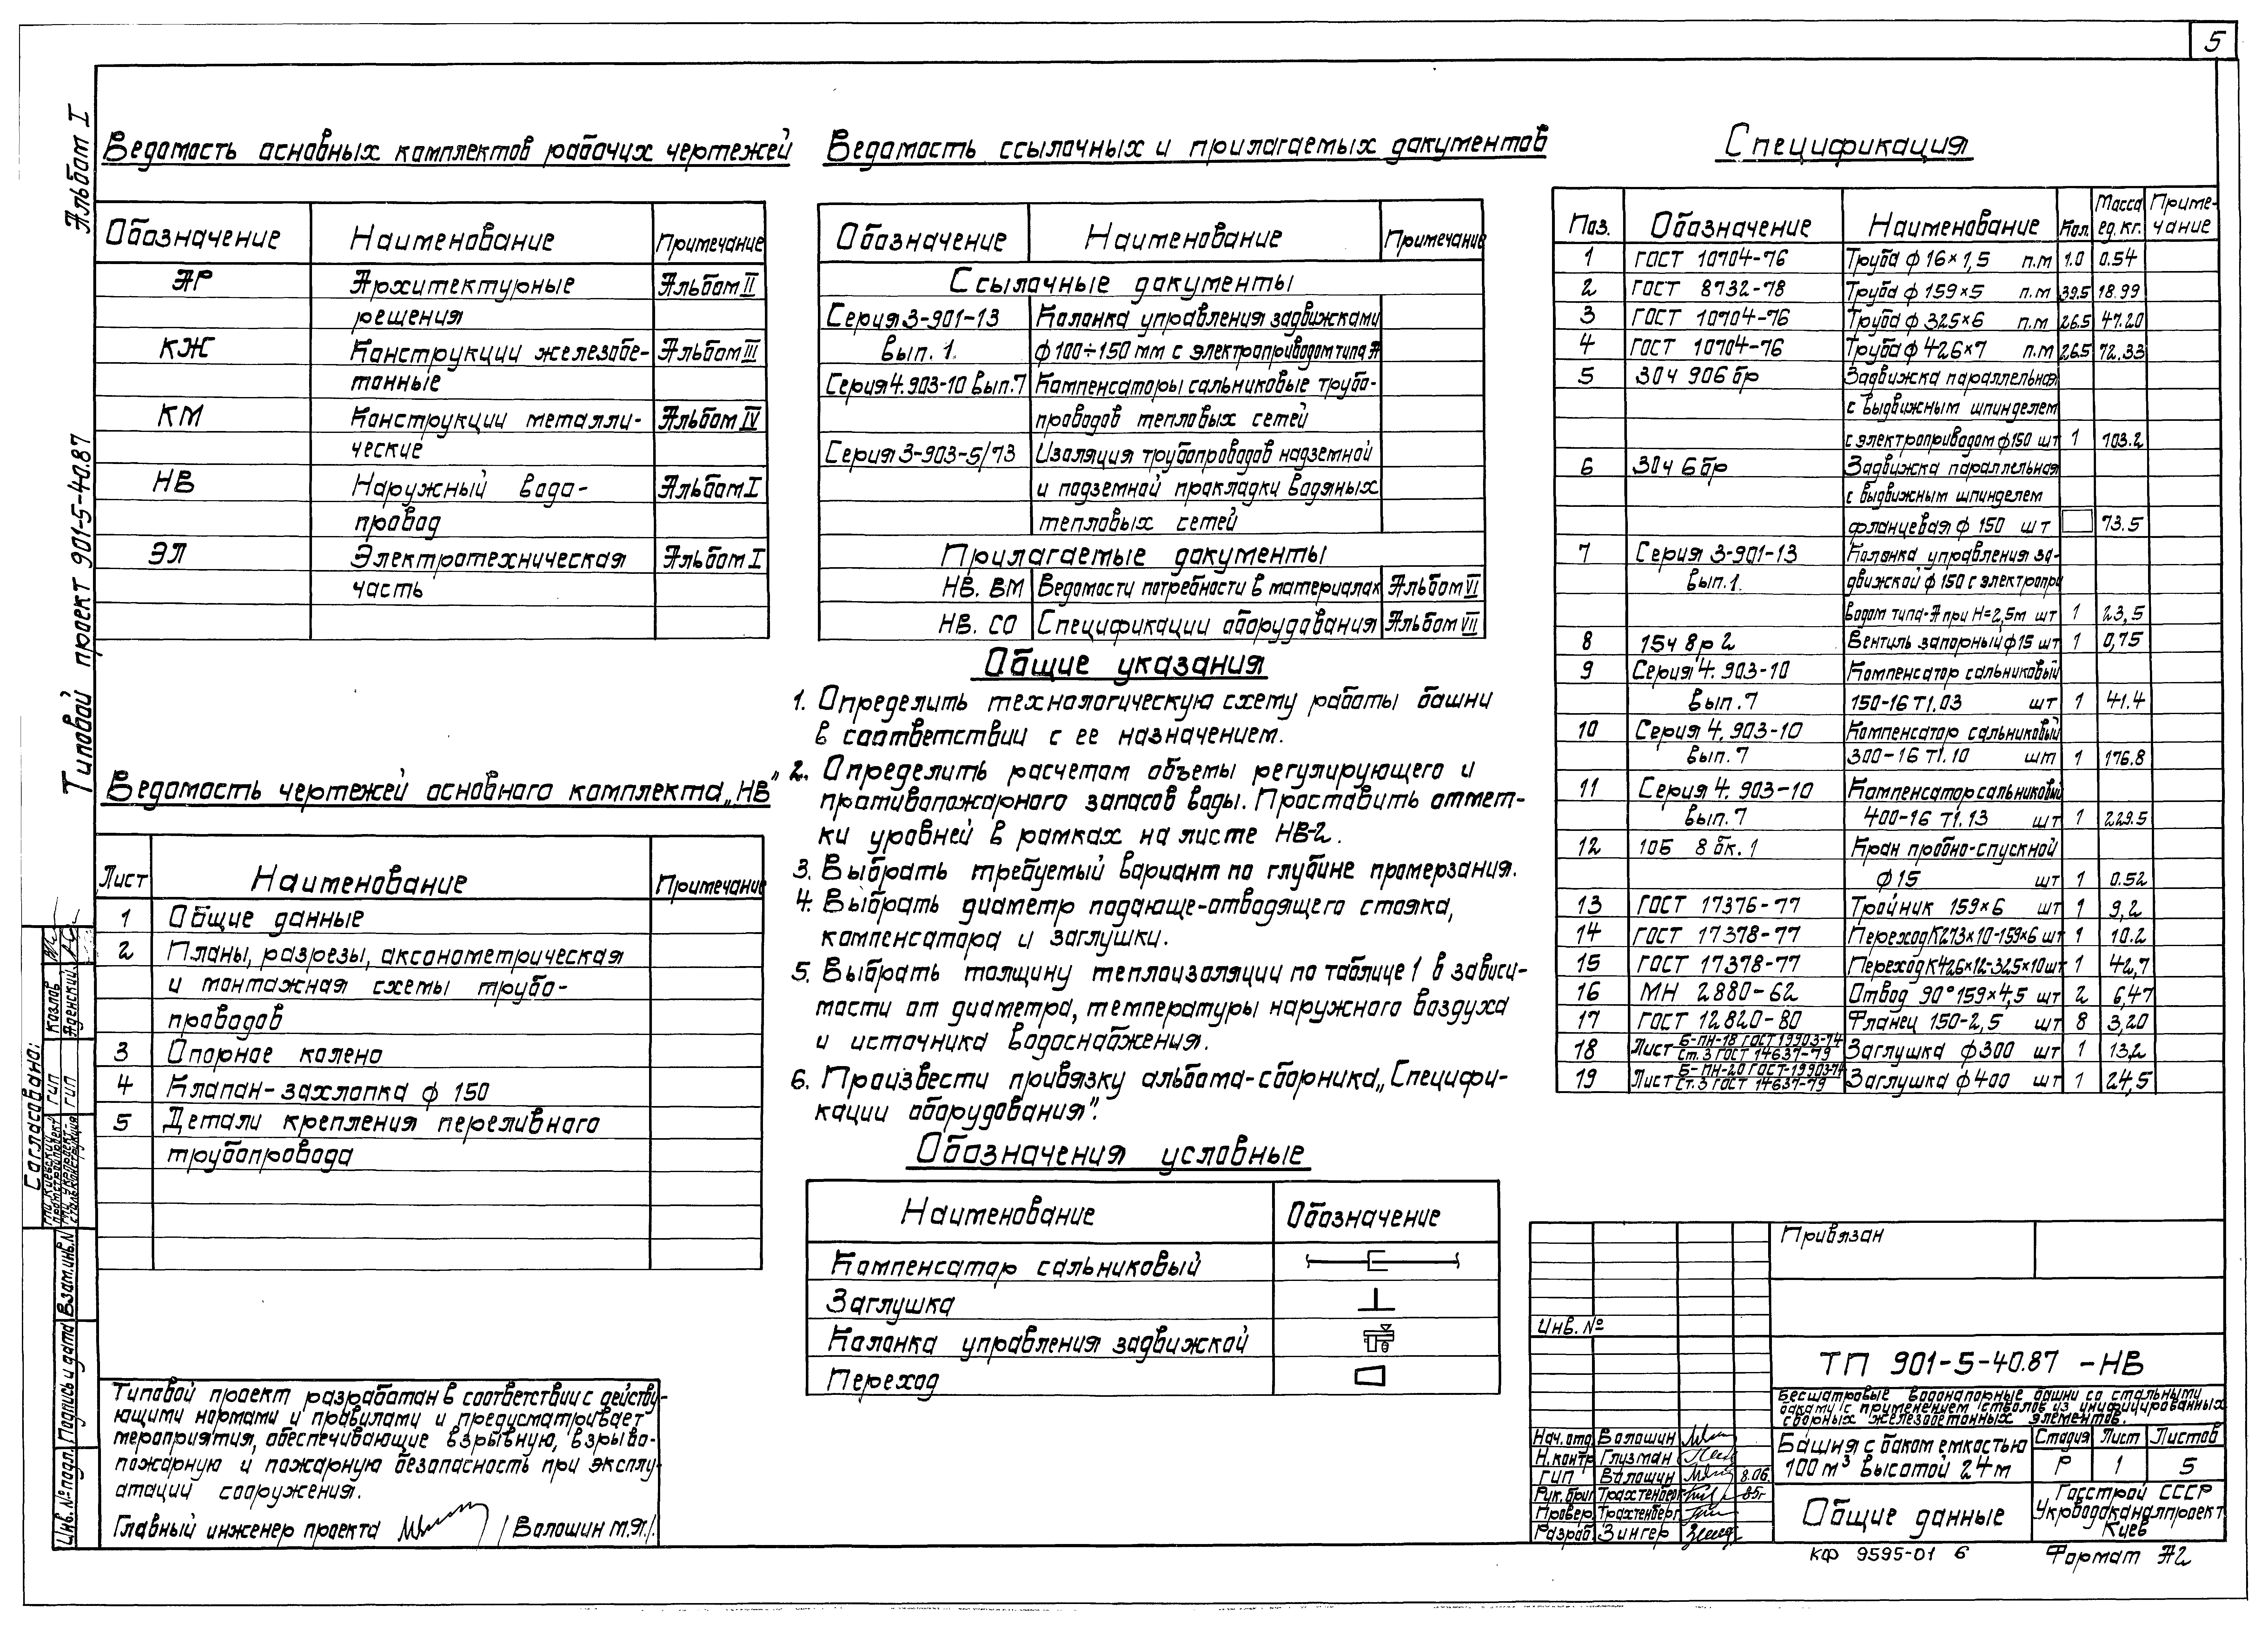 5
Альбом I
Типовой проект 901-5-40.87
Ведомость основных комплектов рабочих чертежей
Обозначение Наименование Примечание
АР Архитектурные Альбом II
решения
КЖ Конструкции железобе- Альбом III
тонные
КМ Конструкции металли- Альбом IV
ческие
НВ Наружный водо- Альбом I
провод
ЭЛ Электротехническая Альбом I
часть
Ведомость чертежей основного комплекта „НВ"
Лист Наименование Примечание
1 Общие данные
2 Планы, разрезы, аксонометрическая
и монтажная схемы трубо-
проводов
3 Опорное колено
4 Клапан-захлопка ф 150
5 Детали крепления переливного
трубопровода
Типовой проект разработан в соответствии с действу-
ющими нормами и правилами и предусматривает
мероприятия, обеспечивающие взрывную, взрыво-
пожарную и пожарную безопасность при эксплу-
атации сооружения.
Главный инженер проекта /Волошин М.Я./
Ведомость ссылочных и прилагаемых документов
Обозначение Наименование Примечание
Ссылочные документы
Серия 3-901-13 Колонка управления задвижками
вып. 1. ф 100÷150 мм с электроприводом типа А
Серия 4.903-10 вып.7 Компенсаторы сальниковые трубо-
проводов тепловых сетей
Серия 3-903-5/73 Изоляция трубопроводов надземной
и подземной прокладки водяных
тепловых сетей
Прилагаемые документы
НВ. ВМ Ведомости потребности в материалах Альбом VI
НВ. СО Спецификации оборудования Альбом VII
Общие указания
1. Определить технологическую схему работы башни
в соответствии с ее назначением.
2. Определить расчетом объемы регулирующего и
противопожарного запасов воды. Проставить отмет-
ки уровней в рамках на листе НВ-2.
3. Выбрать требуемый вариант по глубине промерзания.
4. Выбрать диаметр подающе-отводящего стояка,
компенсатора и заглушки.
5. Выбрать толщину теплоизоляции по таблице 1 в зависи-
мости от диаметра, температуры наружного воздуха
и источника водоснабжения.
6. Произвести привязку альбома-сборника „Специфи-
кации оборудования".
Обозначения условные
Наименование Обозначение
Компенсатор сальниковый
Заглушка
Колонка управления задвижкой
Переход
Спецификация
Поз. Обозначение Наименование Кол. Масса ед. кг. Приме-чание
1 ГОСТ 10704-76 Труба ф 16×1,5 п.м 1.0 0.54
2 ГОСТ 8732-78 Труба ф 159×5 п.м 39.5 18.99
3 ГОСТ 10704-76 Труба ф 325×6 п.м 26.5 47.20
4 ГОСТ 10704-76 Труба ф 426×7 п.м 26.5 72.33
5 30ч 906 бр Задвижка параллельная
с выдвижным шпинделем
с электроприводом ф150 шт 1 103.2
6 30ч 6 бр Задвижка параллельная
с выдвижным шпинделем
фланцевая ф 150 шт 73.5
7 Серия 3-901-13 Колонка управления за-
вып. 1. движкой ф 150 с электропри
водом типа-А при Н=2,5м шт 1 23,5
8 15ч 8р 2 Вентиль запорный ф15 шт 1 0,75
9 Серия 4.903-10 Компенсатор сальниковый
вып. 7 150-16 Т1.03 шт 1 41.4
10 Серия 4.903-10 Компенсатор сальниковый
вып. 7 300-16 Т1.10 шт 1 176.8
11 Серия 4.903-10 Компенсатор сальниковый
вып. 7 400-16 Т1.13 шт 1 229.5
12 10Б 8 бк. 1 Кран пробно-спускной
ф 15 шт 1 0.52
13 ГОСТ 17376-77 Тройник 159×6 шт 1 9,2
14 ГОСТ 17378-77 Переход К273×10-159×6 шт 1 10.2
15 ГОСТ 17378-77 Переход К426×12-325×10 шт 1 42,7
16 МН 2880-62 Отвод 90° 159×4,5 шт 2 6,47
17 ГОСТ 12820-80 Фланец 150-2,5 шт 8 3,20
18 Лист Б-ПН-18 ГОСТ 19903-74 Ст. 3 ГОСТ 14637-79 Заглушка ф300 шт 1 13,2
19 Лист Б-ПН-20 ГОСТ-19903-74 Ст. 3 ГОСТ 14637-79 Заглушка ф400 шт 1 24,5
Привязан
Инв. №
ТП 901-5-40.87 -НВ
Бесшатровые водонапорные башни со стальными
баками с применением стволов из унифицированных
сборных железобетонных элементов.
Нач. отд Волошин
Н. контр Глузман
ГИП Волошин 8.06.
Рук. бриг Трахтенберг 85г
Провер Трахтенберг
Разраб Зингер
Башня с баком емкостью
100 м³ высотой 24 м
Стадия Лист Листов
Р 1 5
Общие данные
Госстрой СССР
Укрводоканалпроект
Киев
КФ 9595-01 6 Формат А2
Согласовано:
ГИП Козлов
ГИП Яденский
Инв. № подл. Подпись и дата Взам. инв. N